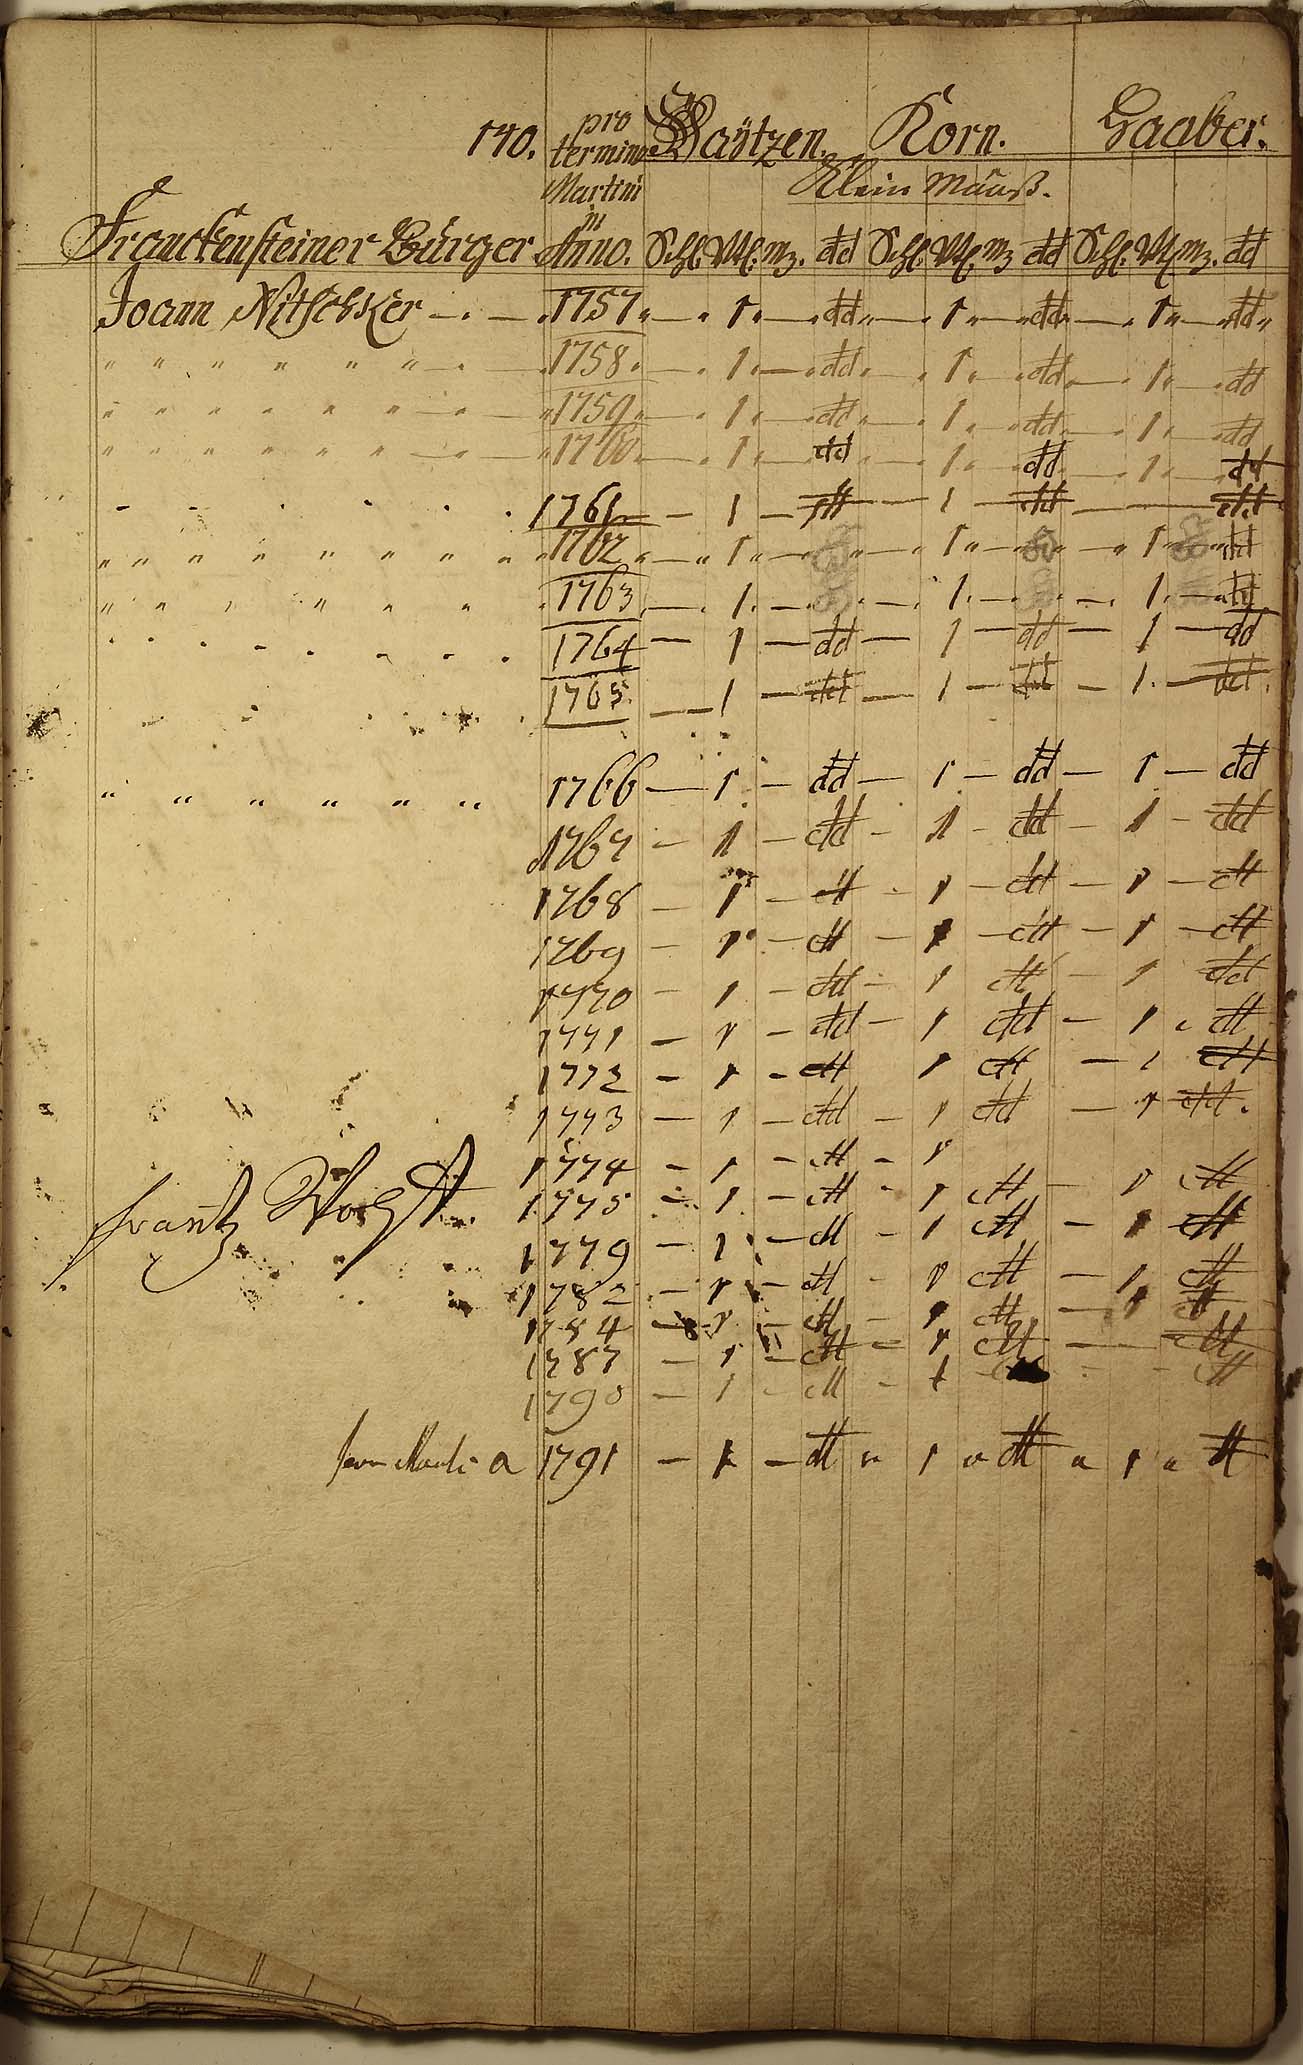 140. pro termino Martini in Anno. Waÿtzen. Korn. Haaber.
Klein Mäaß.
Franckensteiner Bürger Anno. Schl. Vl. mz. dd Schl. Vl. mz dd Schl. Vl. mz. dd
Joann Nitschker 1757 1 dd 1 dd 1 dd
" " " " " " 1758 1 dd 1 dd 1 dd
" " " " " " 1759 1 dd 1 dd 1 dd
" " " " " " " 1760 1 dd 1 dd 1 dd
1761 — 1 — dd — 1 — dd — dd
" " " " " " " " 1762 1 1 1 dd
" " " " " " 1763 1 1 1 dd
1764 — 1 — dd — 1 — dd — 1 — dd
1765 — 1 — dd — 1 — dd — 1 — dd
" " " " " " 1766 — 1 — dd — 1 — dd — 1 — dd
1767 — 1 — dd - 1 - dd — 1 - dd
1768 — 1 — dd - 1 — dd — 1 — dd
1769 — 1 — dd — 1 — dd — 1 — dd
1770 — 1 — dd — 1 dd — 1 dd
1771 — 1 — dd — 1 dd — 1 dd
1772 — 1 - dd 1 dd — 1 dd
1773 — 1 — dd — 1 dd — 1 dd.
1774 — 1 — dd — 1
1775 — 1 — dd - 1 dd — 1 dd
Frantz Vogt 1779 — 1 — dd - 1 dd — 1 dd
1782 — 1 — dd - 1 dd — 1 dd
1784 — 1 — dd — 1 dd — 1 dd
1787 — 1 — dd — 1 dd — dd
1790 — 1 - dd - 1 dd
a 1791 — 1 — dd " 1 " dd " 1 " dd